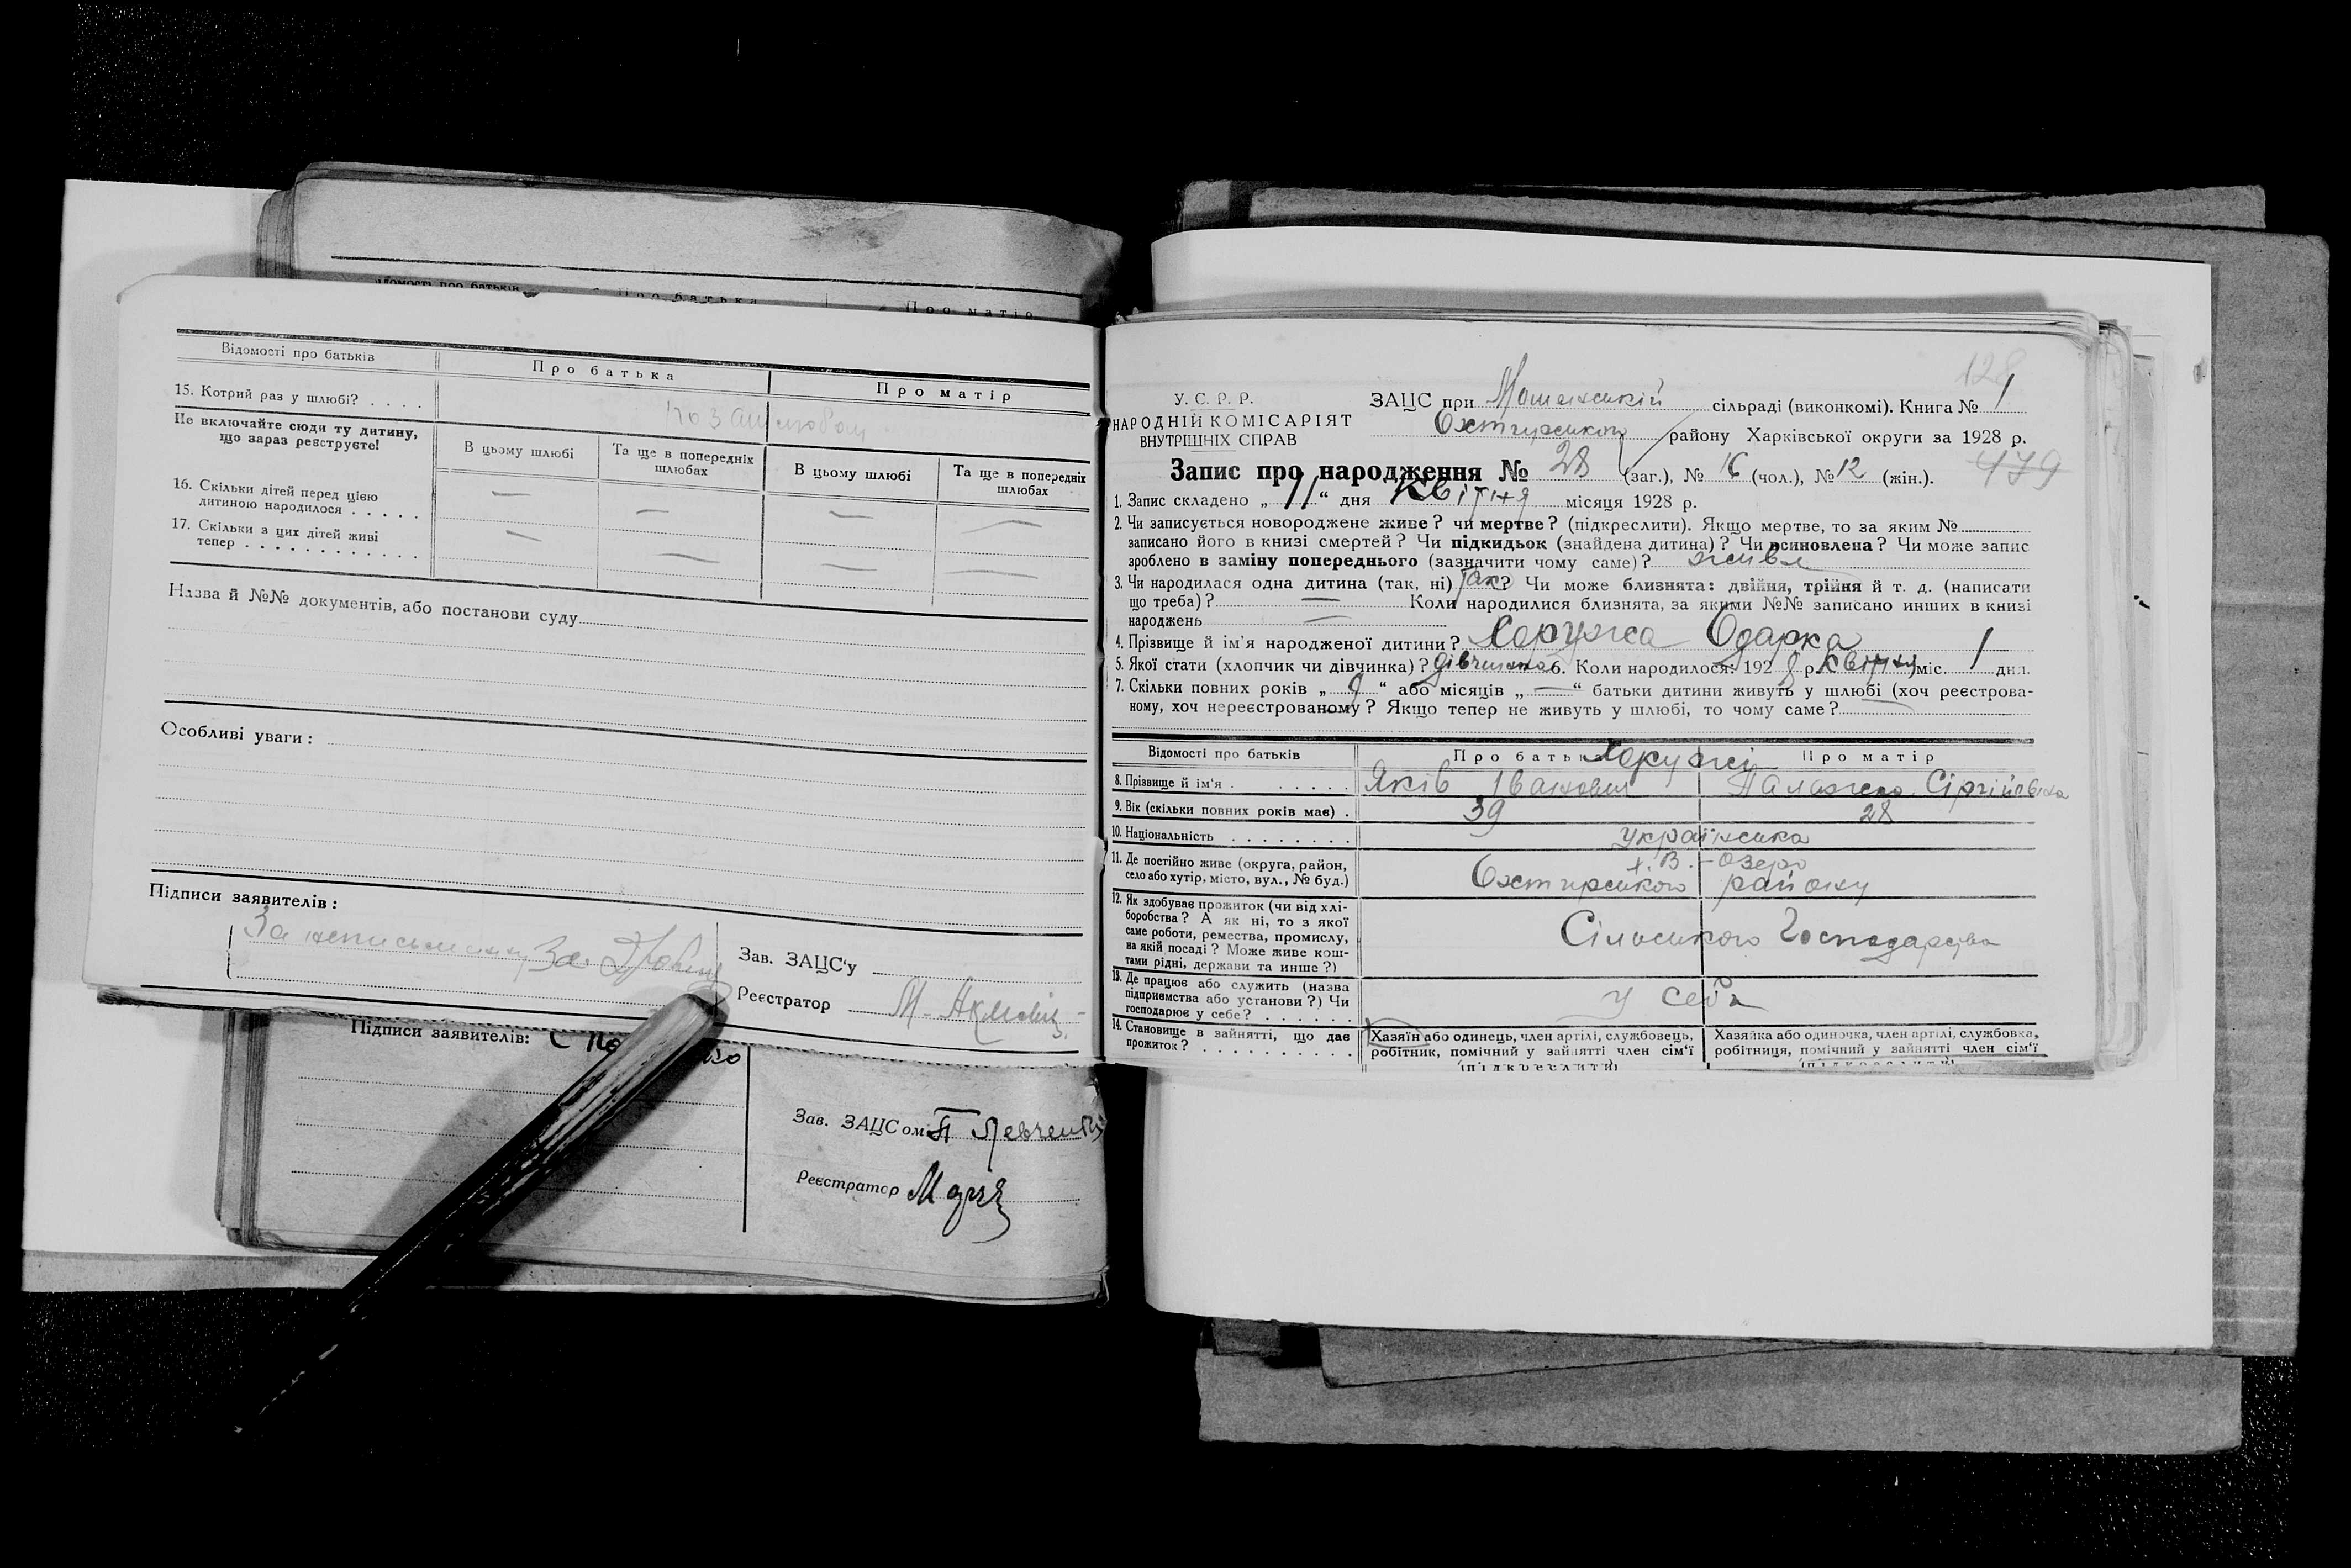 Відомості про батьків
Про батька
Про матір
15. Котрий раз у шлюбі? . . . .
Не включайте сюди ту дитину,
що зараз реєструєте!
В цьому шлюбі
Та ще в попередніх
шлюбах
В цьому шлюбі
Та ще в попередніх
шлюбах
16. Скільки дітей перед цією
дитиною народилося . . . . .
— — — —
17. Скільки з цих дітей живі
тепер . . . . . . . . . . . .
— — — —
Назва й №№ документів, або постанови суду
Особливі уваги:
Підписи заявителів:
За
Зав. ЗАЦС'у
Реєстратор
Підписи заявителів:
Зав. ЗАЦСом П Левченко
Реєстратор
128
У. С. Р. Р.
НАРОДНІЙ КОМІСАРІЯТ
ВНУТРІШНІХ СПРАВ
ЗАЦС при сільраді (виконкомі). Книга № 1
Охтирського району Харківської округи за 1928 р.
Запис про народження № 28 (заг.), № 16 (чол.), № 12 (жін.).
479
1. Запис складено „11“ дня Квітня місяця 1928 р.
2. Чи записується новороджене живе? чи мертве? (підкреслити). Якщо мертве, то за яким №
записано його в книзі смертей? Чи підкидьок (знайдена дитина)? Чи всиновлена? Чи може запис
зроблено в заміну попереднього (зазначити чому саме)? живе
3. Чи народилася одна дитина (так, ні) так? Чи може близнята: двійня, трійня й т. д. (написати
що треба)? — Коли народилися близнята, за якими №№ записано инших в книзі
народжень —
4. Прізвище й ім'я народженої дитини? Хоружа Одарка
5. Якої стати (хлопчик чи дівчинка)? дівчинка 6. Коли народилося: 1928 р. Квітня міс. 1 дня.
7. Скільки повних років „9“ або місяців „—“ батьки дитини живуть у шлюбі (хоч реєстрова-
ному, хоч нереєстрованому? Якщо тепер не живуть у шлюбі, то чому саме?
Відомості про батьків
Про батька
Хоружі
Про матір
8. Прізвище й ім'я . . . . . .
Яків Іванович
Палажка Сіргійовна
9. Вік (скільки повних років має) .
39
28
10. Національність . . . . . . . .
українська
11. Де постійно живе (округа, район,
село або хутір, місто, вул., № буд.)
х. В.-Озеро
Охтирського району
12. Як здобуває прожиток (чи від хлі-
боробства? А як ні, то з якої
саме роботи, ремества, промислу,
на якій посаді? Може живе кош-
тами рідні, держави та инше?)
Сільського Господарства
13. Де працює або служить (назва
підприємства або установи?) Чи
господарює у себе? . . . . . .
у себе
14. Становище в зайнятті, що дає
прожиток? . . . . . . . . . . .
Хазяїн або одинець, член артілі, службовець,
робітник, помічний у зайнятті член сім'ї
(підкреслити)
Хазяйка або одиночка, член артілі, службовка,
робітниця, помічний у зайнятті член сім'ї
(підкреслити)